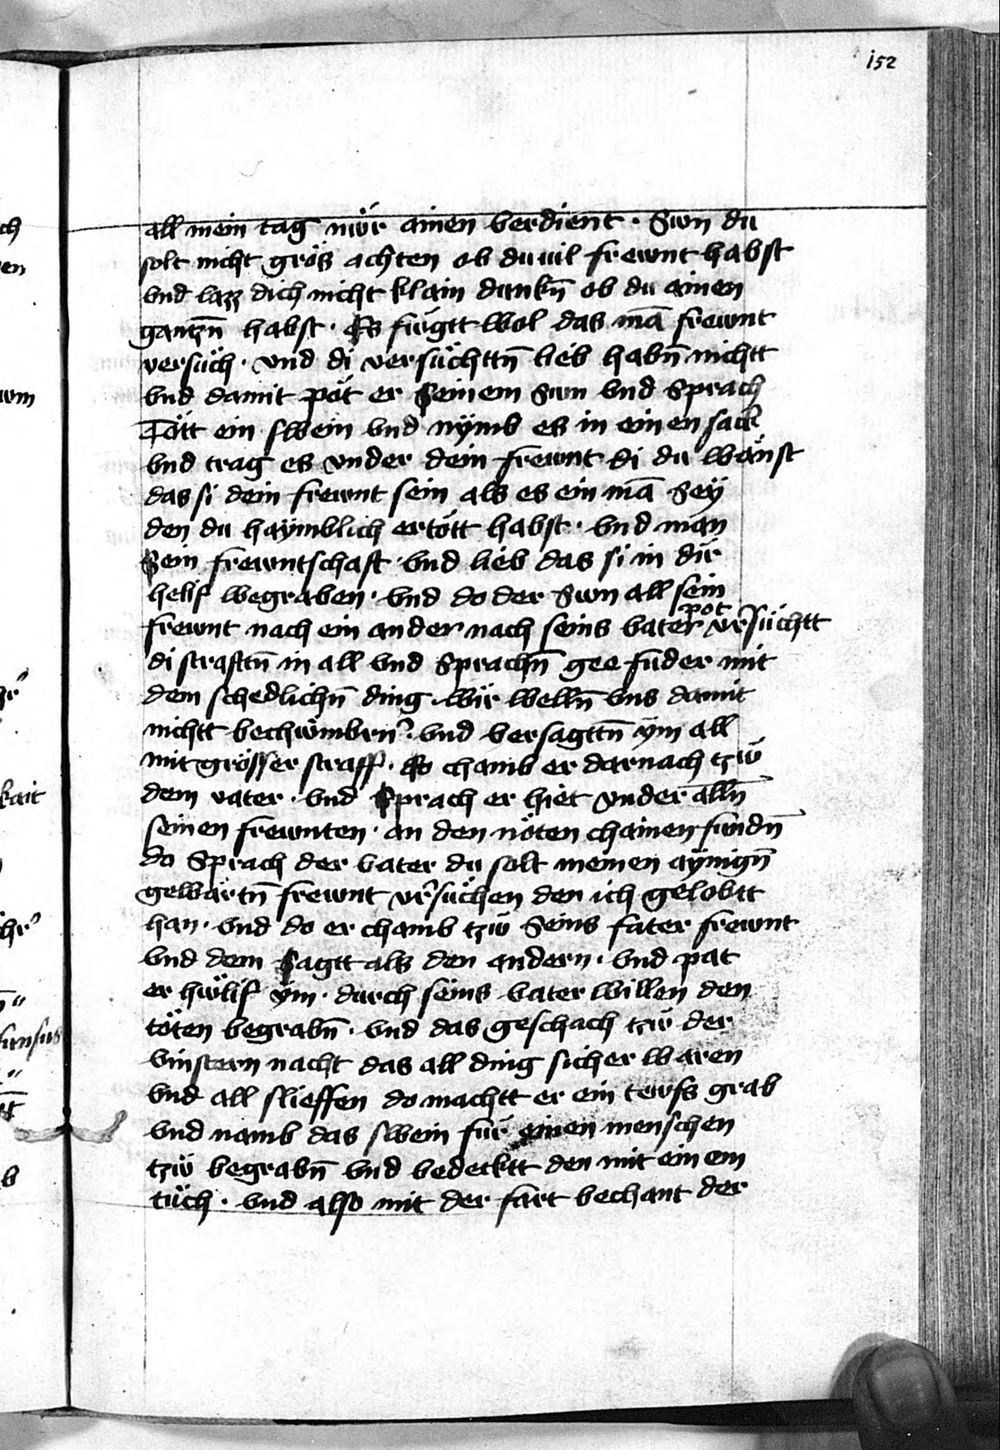 152
all mein tag nuͤr ainen verdient · Sun du
solt nicht groͤs achten ob du vil frewnt habst
vnd lazz dich nicht klain dunkn̄ ob du ainen
gantzn̄ habst · Es fuͤgtt wol das mā frewnt
versuͤch · vnd di versuͤchttn̄ lieb habn̄ nichtt
vnd damit poͤt er Seinem Sun vnd Sprach
Toͤtt ein swein vnd nÿmb es in einen sack
vnd trag es vnder dein frewnt di du waͤnst
das si dein frewnt sein als es ein mā Seÿ
den du haÿmblich ertoͤtt habst · vnd man
Sein frewntschaft · vnd lieb das si in dir
helif wegraben · vnd do der Sun all sein
frewnt nach ein ander nach seins vater pot vrsuͤchtt
di strafttn̄ in all vnd Sprachn̄ gee fuder mit
dem schedlichn̄ ding · wir welln̄ vns damit
nichtt bechuͤmbrn̄ · vnd versagttn̄ ÿm all
mit groͤsser straff · So chamb er darnach tzuͦ
dem vater · vnd Sprach er hiet vnder alln̄
seinen frewnten · an den noͤten chainen fundn̄
do Sprach der vater du solt meinen aÿnign̄
gewaͤrtn̄ frewnt vrsuͤchen den ich gelobtt
han · vnd do er chamb tzuͦ Seins fater frewnt
vnd dem Sagtt als den andern · vnd pat
er huͤlif ÿm · durch seins vater willen den
toͤten begrabn̄ · vnd das geschach tzuͦ der
vinstern nacht das all ding sicher waren
vnd all slieffen do machtt er ein tewfs grab
vnd namb das swein fuͤr einen menschen
tzuͦ begrabn̄ vnd bedecktt den mit einem
tuͤch · vnd also mit der fart bechant der